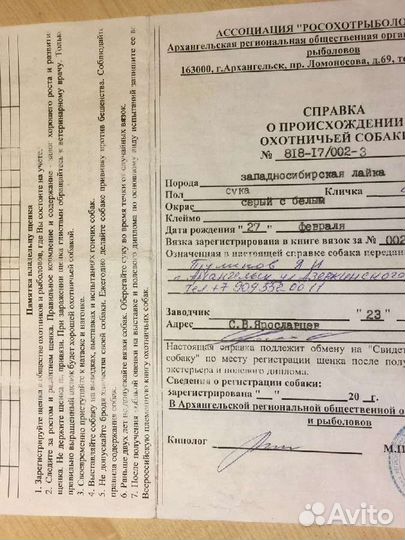 АССОЦИАЦИЯ "РОСОХОТРЫБОЛОВ
Архангельская региональная общественная орган
рыболовов
163000, г.Архангельск, пр. Ломоносова, д.69, те
СПРАВКА
О ПРОИСХОЖДЕНИИ
ОХОТНИЧЬЕЙ СОБАКИ
№ 818-17/002-3
Порода западносибирская лайка
Пол сука Кличка
Окрас серый с белым
Клеймо
Дата рождения "27" февраля
Вязка зарегистрирована в книге вязок за № 002
Означенная в настоящей справке собака передана
г. Архангельск ул Дзержинского
Заводчик "23"
Адрес С.В.Ярославцев
Настоящая справка подлежит обмену на "Свидет
собаку" по месту регистрации щенка после полу
экстерьера и полевого диплома.
Сведения о регистрации собаки:
зарегистрирована " " 20 г.
В Архангельской региональной общественной о
и рыболовов
Кинолог М.П
Памятка владельцу щенка
1. Зарегистрируйте щенка в обществе охотников и рыболовов, где Вы состоите на учете.
2. Следите за ростом и развитием щенка. Правильное кормление и содержание - залог хорошего роста и развити
щенка. Не держите щенка на привязи. При заражении щенка глистами обращайтесь к ветеринарному врачу. Тольк
правильно выращенный щенок будет хорошей охотничьей собакой.
3. Своевременно приступайте к нагонке и натаске.
4. Выставляйте собаку на выводках, выставках и испытаниях гончих собак.
5. Не допускайте бродяжничества своей собаки. Ежегодно делайте собаке прививку против бешенства. Соблюдайте
правила содержания собак.
6. Раньше двух лет не допускайте вязки собак. Оберегайте суку во время течки от случайных вязок.
7. После получения собакой оценки на выставке и полевого диплома по основному виду испытаний запишите ее в
Всероссийскую племенную книгу охотничьих собак.
Avito